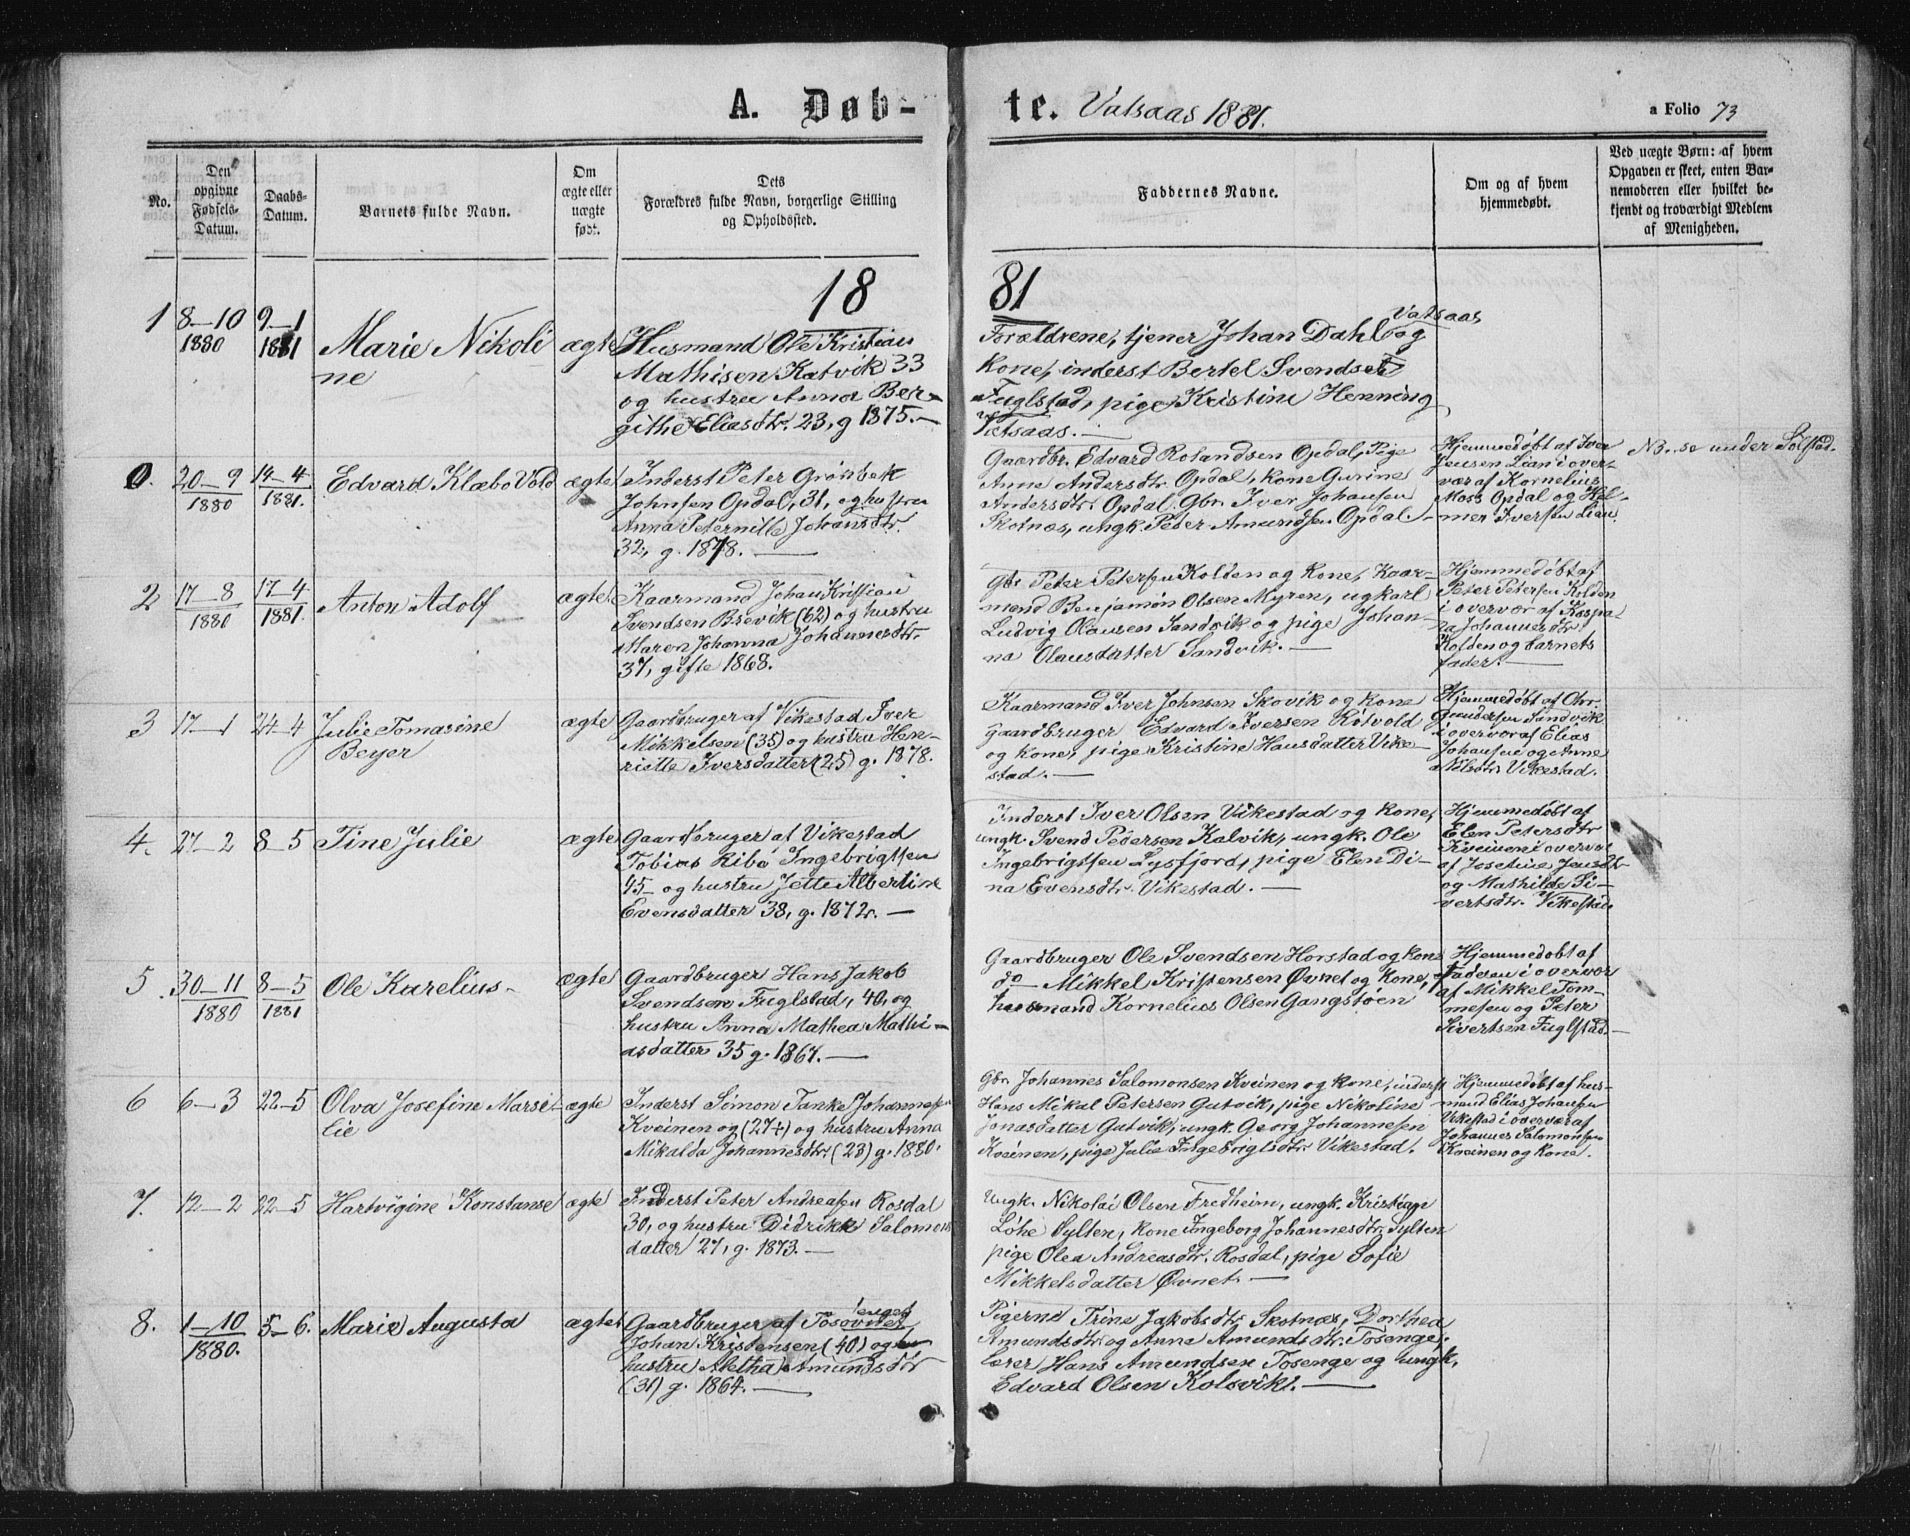 A. Døb-
te. Vatsaas 1881.
a Folio 73
No.
Den opgivne Fødsels-Datum.
Daabs-Datum.
Barnets fulde Navn.
Om ægte eller uægte født.
Dets Forældres fulde Navn, borgerlige Stilling og Opholdssted.
Faddernes Navne.
Om og af hvem hjemmedøbt.
Ved uægte Børn: af hvem
Opgaven er skeet, enten Bar-
nemoderen eller hvilket be-
kjendt og troværdigt Medlem
af Menigheden.
18 81
1 8-10 1880 9-1 1881
Marie Nikoli
ne
ægte
Husmand Ole Kristian
Mathisen Katvik 33
og hustru Anna Ber-
githe Eliasdtr. 23, g 1875.
Forældrene, tjener Johan Dahl Vatsaas og
kone, inderst Bertel Svendsen
Fuglstad, pige Kristine Henning
Vatsaas.
0. 20-9 1880 14-4 1881.
Edvard Klæbo Vold
ægte
Inderst Peter Grönbek
Johnsen Opdal, 31, og hustru
Anna Peternille Johansdtr.
32, g. 1878.
Gaardbr. Edvard Rolandsen Opdal, Pige
Anne Andersdtr Opdal, kone Gurine
Andersdtr. Opdal. Gbr. Iver Johansen
Skotnæs, ungk. Peder Amundsen Opdal.
Hjemmedøbt af Iver
Jensen Lian i over-
vær af Kornelius
Moss Opdal og Hel-
mer Iversen Lian.
NB. se under Solstad.
2 17-8 1880 17-4 1881.
Anton Adolf
ægte
Kaarmand Johan Kristian
Svendsen Brevik (62) og hustru
Maren Johanna Johannesdtr.
37, gifte 1868.
Gbr Peter Petersen Kolden og kone, Kaar-
mand Benjamön Olsen Myren, ugkarl
Ludvig Olausen Sandvik og pige Johan-
na Olausdatter Sandvik.
Hjemmedøbt af
Peter Petersen Kolden
i overvær af Kaspa-
ra Johannesdtr.
Kolden og barnets
fader.
3 17-1 24-4
Julie Tomasine
Beyer
ægte
Gaardbruger af Vikestad Iver
Mikkelsen (35) og hustru Hen-
riette Iversdatter (25) g. 1878.
Kaarmand Iver Johnsen Skovik og kone
gaardbruger Edvard Iversen Rötvold
og kone, pige Kristine Hansdatter Vike-
stad.
Hjemmedøbt af Chr.
Gundersen Sandvik
i overvær af Elias
Johansen og Anne
Nilsdtr. Vikestad.
4. 27-2 8-5
Tine Julie
ægte
Gaardbruger af Vikestad
Tobias Ribo Ingebrigtsen
45 og hustru Jette Albertine
Evensdatter 38, g. 1872.
Inderst Iver Olsen Vikestad og kone,
ungk. Svend Pedersen Kalvik, ungk. Ole
Ingebrigtsen Lysfjord, pige Elen Di-
na Evensdtr. Vikestad.
Hjemmedøbt af
Elen Petersdtr
Kveinen i overvær
af Josefine Jensdtr
og Mathilde Si-
vertsdtr. Vikestad
5. 30-11 1880 8-5 1881
Ole Karelius
ægte
Gaardbruger Hans Jakob
Svendsen Fuglstad, 40, og
hustru Anna Mathea Mathi-
asdatter 35 g. 1867.
Gaardbruger Ole Svendsen Horstad og kone
do Mikkel Kristensen Øvnet og kone,
husmand Kornelius Olsen Gangstøen
Hjemmedøbt af
faderen i overvær
af Mikkel Tom-
mesen og Peter
Sivertsen Fuglstad
6 6-3 22-5
Olva Josefine Marse-
lie
ægte
Inderst Simon Tanke Johannesen
Kveinen og (27) og hustru Anna
Mikalda Johannesdtr (23) g. 1880.
Gbr. Johannes Salomonsen Kveinen og kone, inderst
Hans Mikal Petersen Gutvik, pige Nikoline
Jonasdatter Gutvik, ungk. Georg Johannesen
Kveinen, pige Julie Ingebrigtsdtr. Vikestad.
Hjemmedøbt af hus-
mand Elias Johansen
Vikestad i overvær af
Johannes Salomonsen
Kveinen og kone.
7. 12-2 22-5
Hartvigine Konstanse
ægte
Inderst Peter Andreasen Rosdal
30, og hustru Didrikke Salomons
datter 27, g. 1873.
Ungk. Nikolai Olsen Fredheim, ungk. Kristian
Löhe Sylten, kone Ingeborg Johannesdtr. Sylten
pige Olea Andreasdtr. Rosdal, pige Sofie
Mikkelsdatter Øvnet.
8. 1-10 1880. 5-6.
Marie Augusta
ægte
Gaardbruger af Tosovnet enget
Johan Kristensen (40) og
hustru Aletha Amundsdtr
(31) g. 1864.
Pigerne Trine Jakobsdtr Skotnæs, Dorthea
Amundsdtr og Anne Amundsdtr. Tosenge,
lærer Hans Amundsen Tosenge og ungk.
Edvard Olsen Kolsvik.